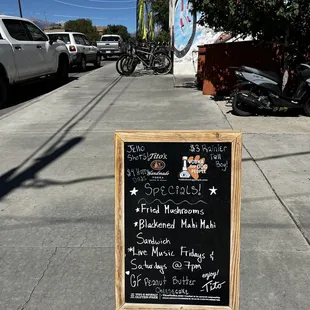 Jello
Shots!
$3 Rainier
Tall
Boy
Tito's
Handmade
VODKA
Specials!
*Fried Mushrooms
*Blackened Mahi Mahi
Sandwich
*Live Music Fridays &
Saturdays @ 7pm
*GF Peanut Butter
Cheesecake
enjoy
Tito